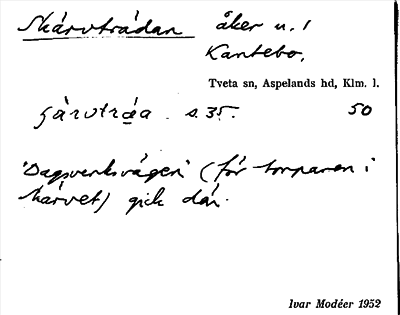 Skárvträdan åker u. 1
Kantebo.
Tveta sn, Aspelands hd, Klm. l.
s. 35. 50
'Dagsverksvägen' (för torparen i
Skárvet) gick där.
Ivar Modéer 1952